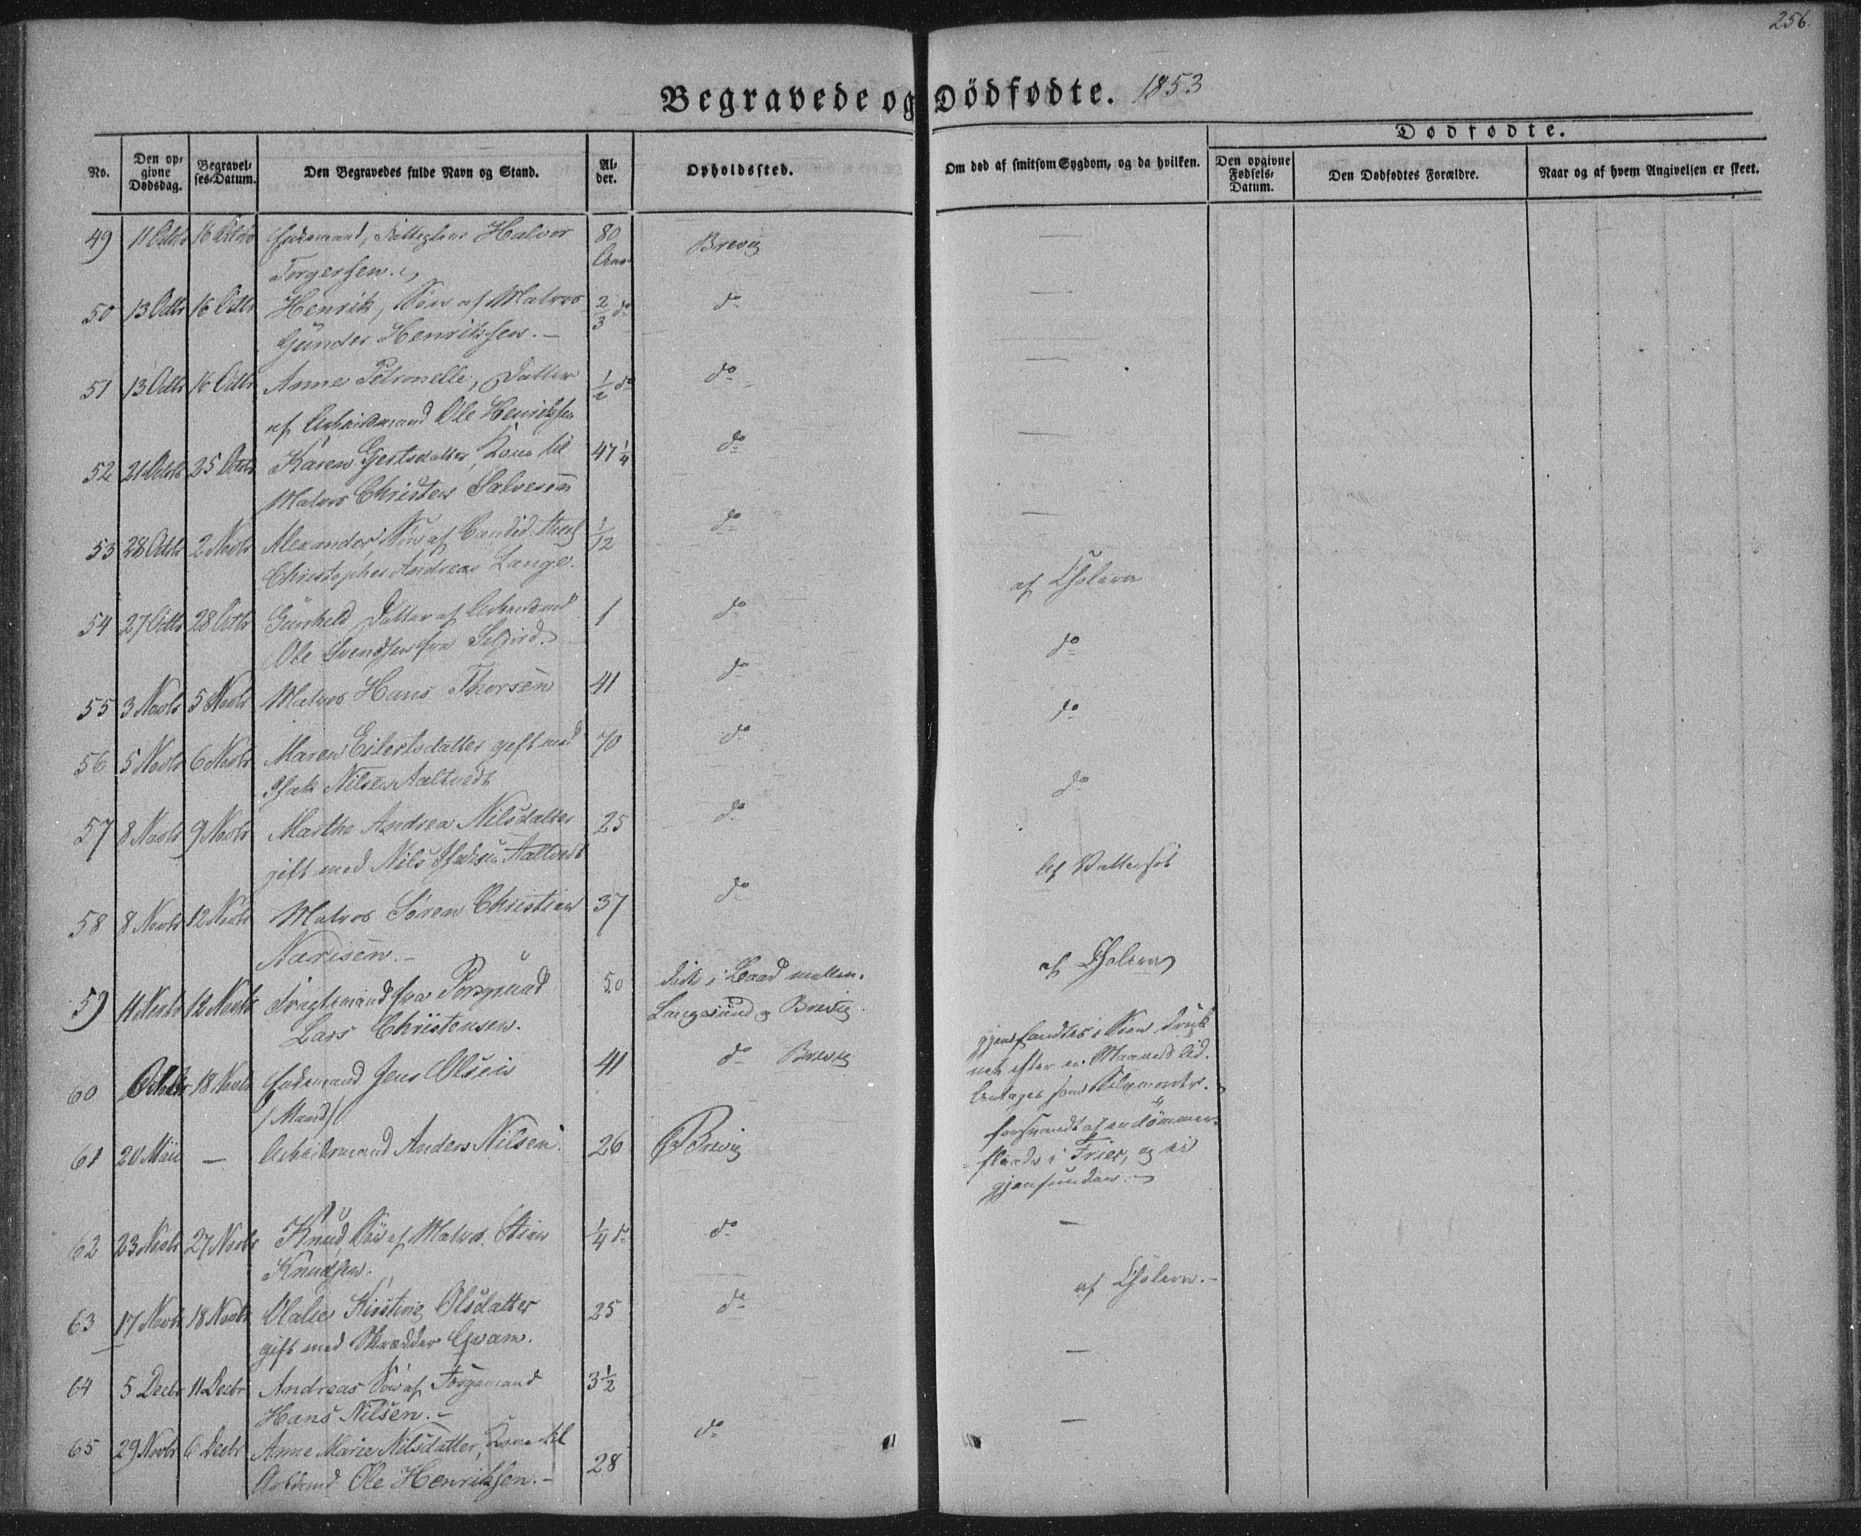 256.
Begravede og Dödfødte. 1853
Dødfødte.
No.
Den op-
givne
Dødsdag.
Begravel-
ses-Datum.
Den Begravedes fulde Navn og Stand.
Al-
der.
Opholdssted.
Om død af smitsom Sygdom, og da hvilken.
Den opgivne
Fødsels-
Datum.
Den Dødfødtes Forældre.
Naar og af hvem Angivelsen er skeet.
49 11 Octbr 16 Octbr Enkemand, Halvor 80 Brevig
Torgersen. Aar
50 13 Octbr 16 Octbr Henrik, Søn af Matros 2/3 do do
Gunder Henriksen. —
51 13 Octbr 16 Octbr Anne Petronelle, Datter 1/2 do do
af Arbeidsmand Ole Henriksen
52 21 Octbr 25 Octbr Karen Gertsdatter, Kone til 47 1/4 do
Matros Christen Salvesen
53 28 Octbr 2 Novbr Alexander, Søn af 1/12 do
Christopher Andreas Lange. af Cholera
54 27 Octbr 28 Octbr Gunhild Datter af 1 do
Ole Svendsen fra do
55 3 Novbr 5 Novbr Matros Hans Thorsen 41 do do
56 5 Novbr 6 Novbr Maren Eilertsdatter gift med 70 do
Isak Nilsen Aaltvedt do
57 8 Novbr 9 Novbr Marthe Andrea Nilsdatter 25 do
gift med Nils Isaksen Aaltvedt Af Vattersot
58 8 Novbr 12 Novbr Matros Søren Christian 37 do
Narisen. — af Cholera
59 11 Novbr 12 Novbr fra Porsgrund 50 døde i Baad mellem
Lars Christensen. Langesund og Brevig.
60 Octobr 18 Novbr Enkemand Jens Olsen 41 do Brevig gjenfandtes i Søen druk-
net efter en Maaneds Tid.
/Mand/
61 20 Mai — Arbeidsmand Anders Nilsen 26 Brevig
forsvandt af en Tømmer-
flaade i Frier, og ei
gjenfunden. —
62 23 Novbr 27 Novbr Knud, Søn af Matros Stian 1/4 do do —
Knudsen.
63 17 Novbr 18 Novbr Olalie Kirstine Olsdatter 25 do af Cholera. —
gift med Skrædder
64 5 Decbr 11 Decbr Andreas Søn af 3 1/2 —
Hans Nilsen. —
65 29 Novbr 6 Decbr Anne Marie Nilsdatter, Kone til 28 do —
Ole Henriksen. —